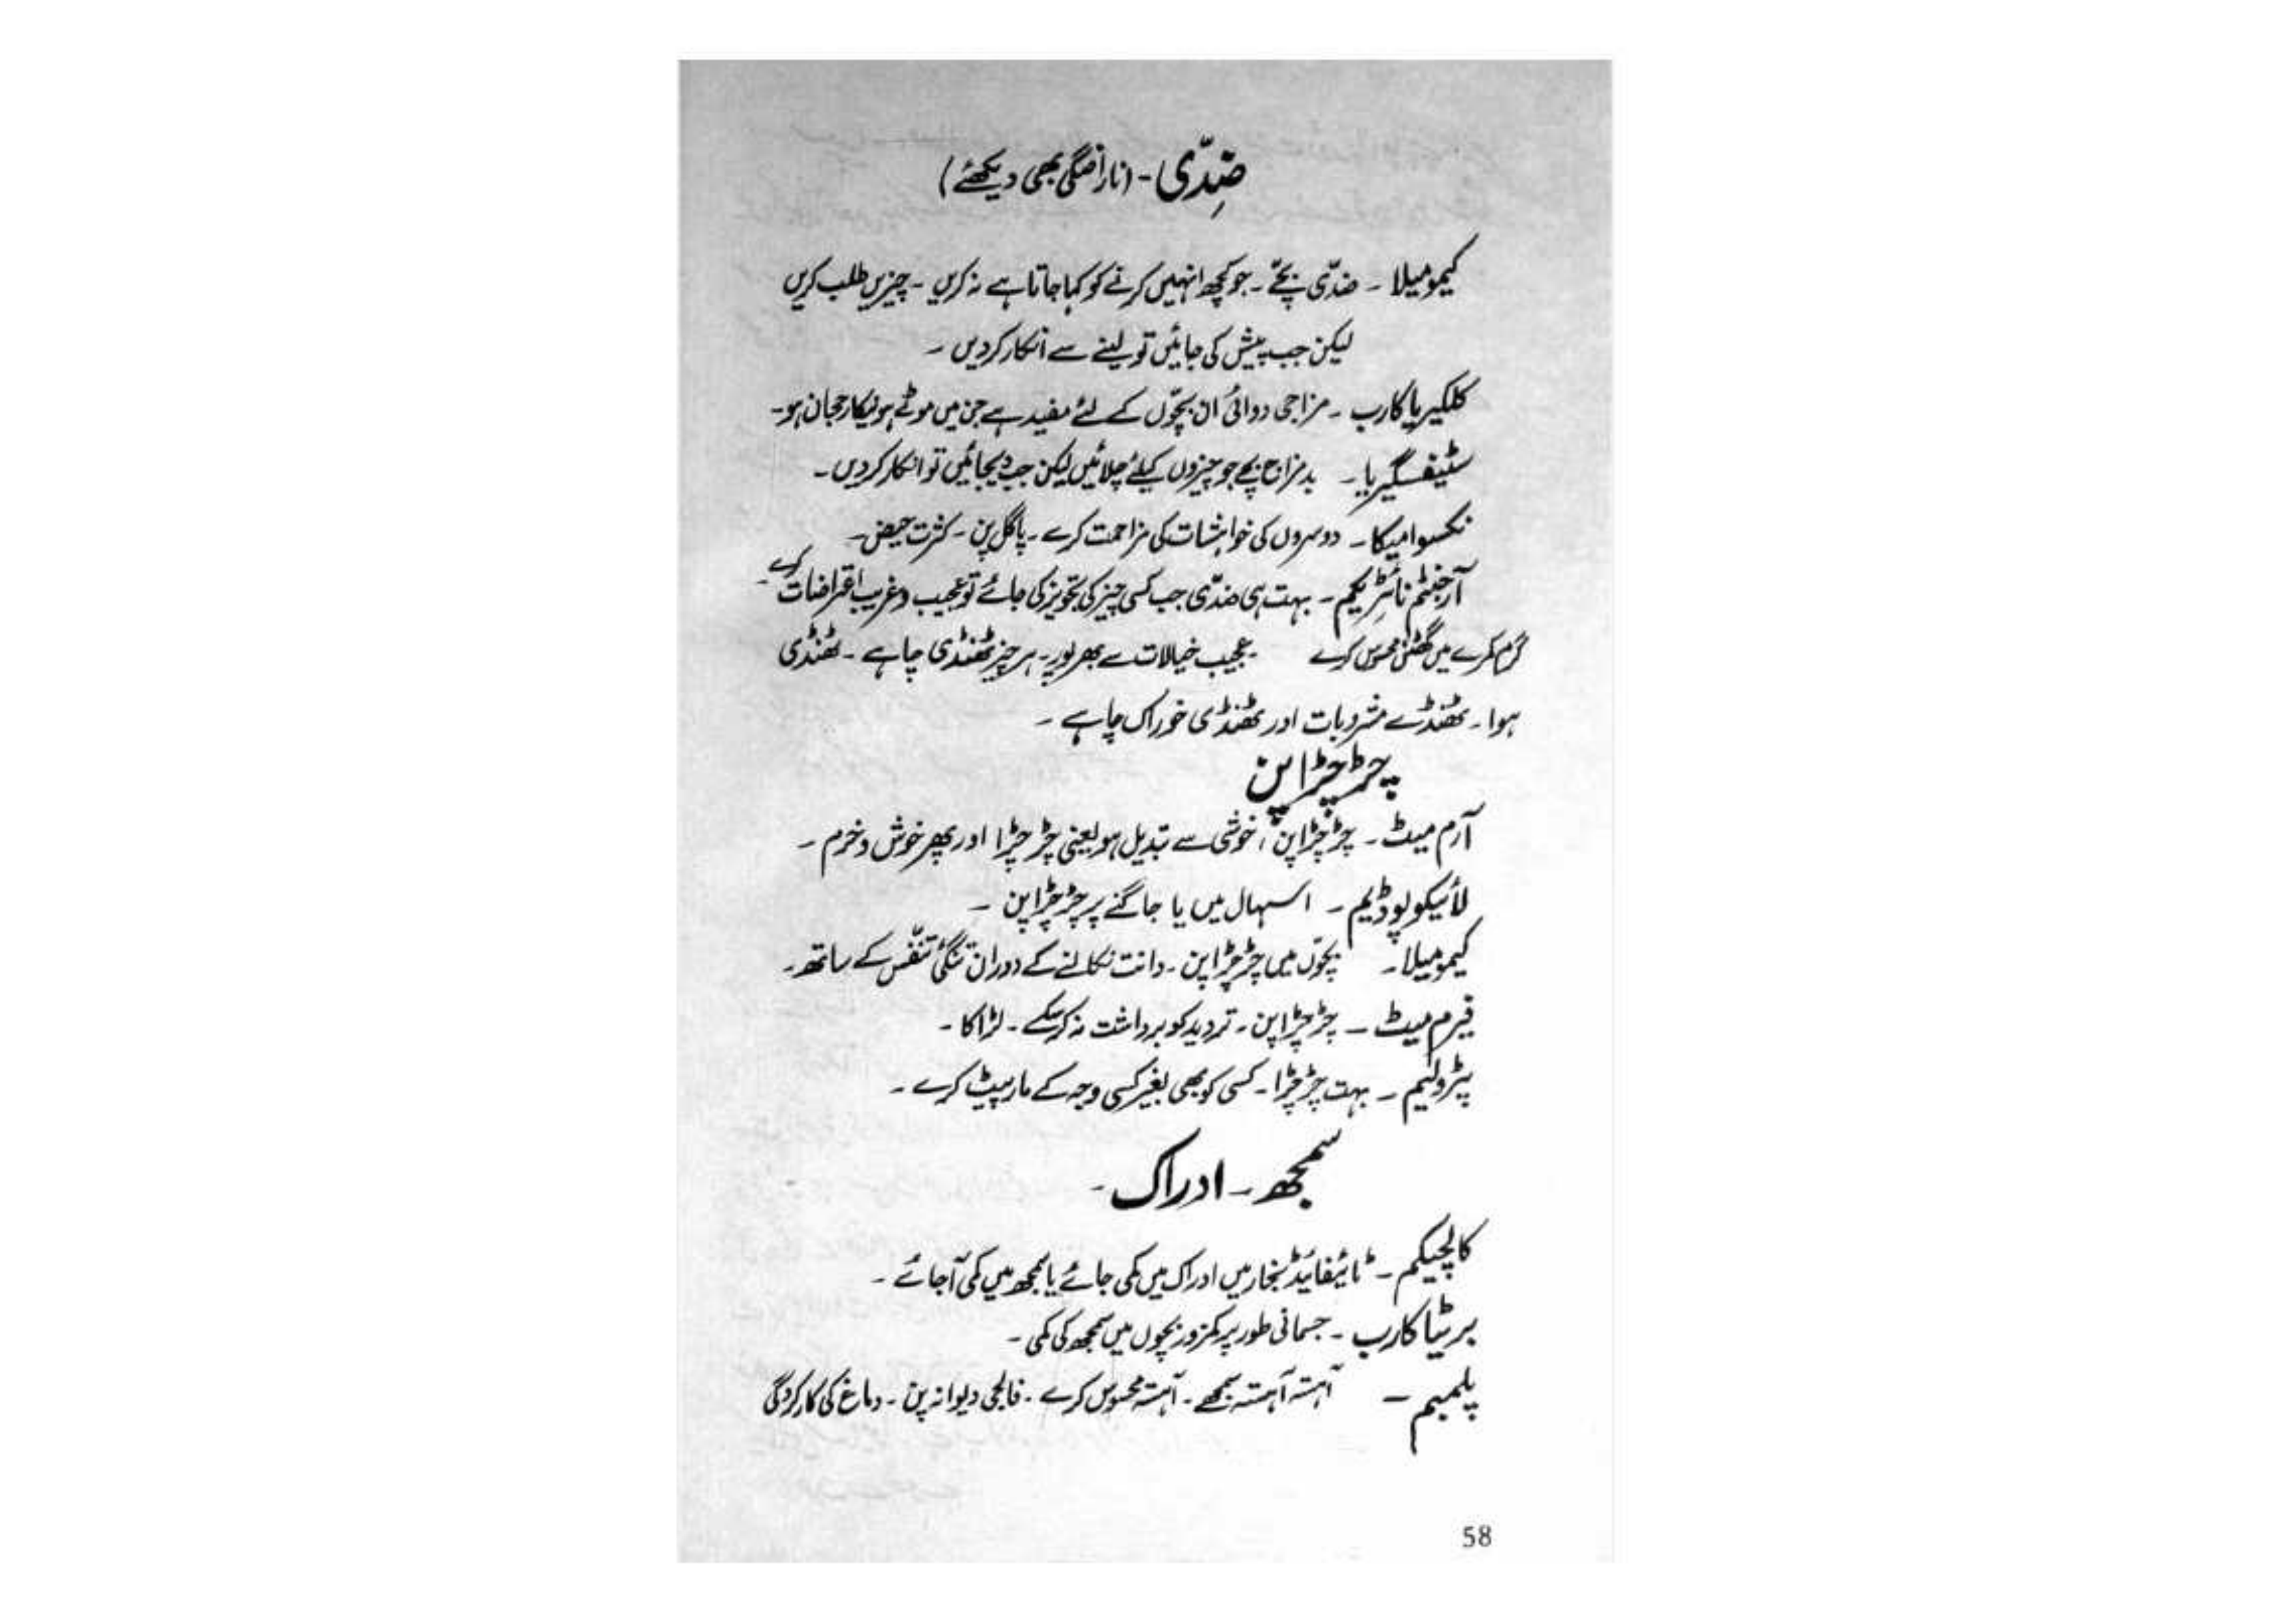 ضِدّی - (ناراضگی بھی دیکھئے)
کیمومیلا - ضدّی بچّے - جو کچھ انہیں کرنے کو کہا جاتا ہے نہ کریں - چیزیں طلب کریں
لیکن جب پیش کی جائیں تو لینے سے انکار کر دیں -
کلکیریا کارب - مزاجی دوائی اُن بچّوں کے لئے مفید ہے جن میں موٹے ہونیکا رحجان ہو -
سٹیفسگیریا - بدمزاج بچے جو چیزوں کیلئے چلائیں لیکن جب دیجائیں تو انکار کر دیں -
نکسوامیکا - دوسروں کی خواہشات کی مزاحمت کرے - پاگل پن - کثرت حیض -
آرجنٹم نائٹریکم - بہت ہی ضدّی جب کسی چیز کی تجویز کی جائے تو عجیب و غریب اعتراضات کرے -
گرم کمرے میں گھٹن محسوس کرے - عجیب خیالات سے بھرپور - ہر چیز ٹھنڈی چاہے - ٹھنڈی
ہوا - ٹھنڈے مشروبات اور ٹھنڈی خوراک چاہے -
چڑچڑاپن
آرم میٹ - چڑچڑاپن، خوشی سے تبدیل ہو یعنی چڑچڑا اور پھر خوش و خرم -
لائیکوپوڈیم - اسہال میں یا جاگنے پر چڑچڑاپن -
کیمومیلا - بچّوں میں چڑچڑاپن - دانت نکالنے کے دوران تنگئ تنفّس کے ساتھ -
فیرم میٹ - چڑچڑاپن - تردید کو برداشت نہ کر سکے - لڑاکا -
پٹرولیم - بہت چڑچڑا - کسی کو بھی بغیر کسی وجہ کے مار پیٹ کرے -
سمجھ - ادراک -
کالچیکم - ٹائیفائیڈ بخار میں ادراک میں کمی جائے یا سمجھ میں کمی آ جائے -
بریٹا کارب - جسمانی طور پر کمزور بچوں میں سمجھ کی کمی -
پلمبم - آہستہ آہستہ سمجھے - آہستہ محسوس کرے - فالجی دیوانہ پن - دماغ کی کارکردگی
58